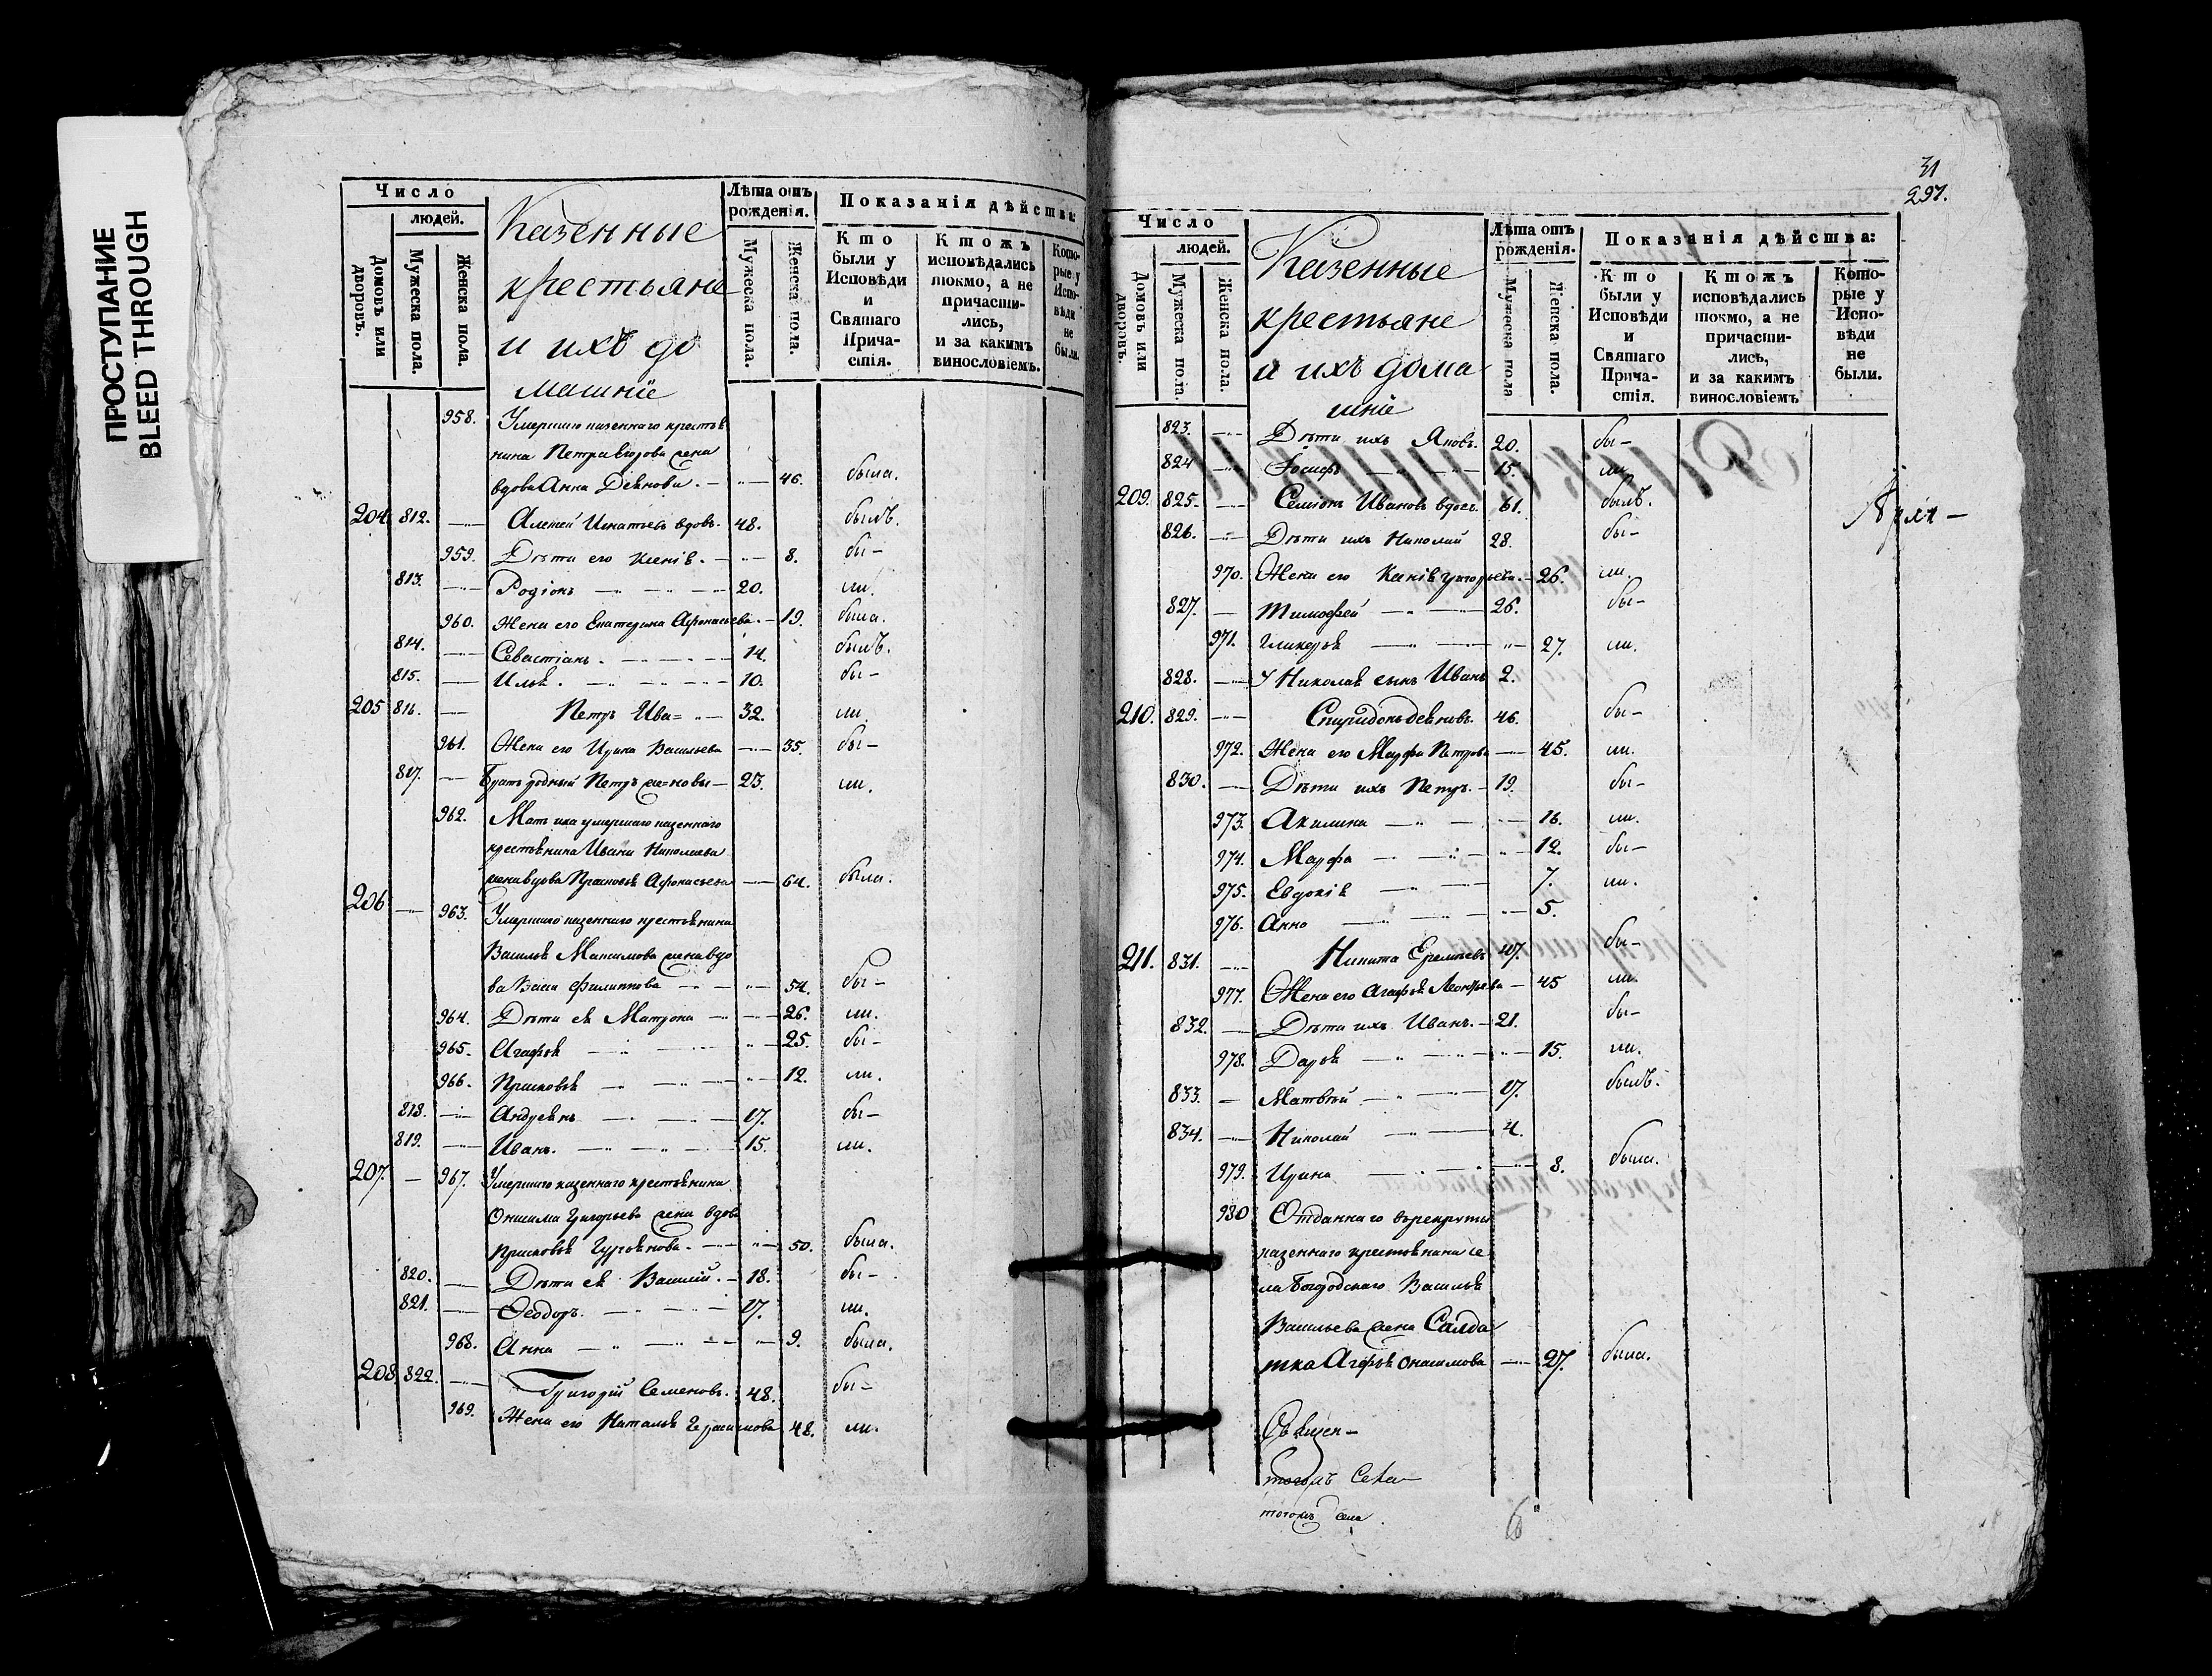 ПРОСТУПАНИЕ
BLEED THROUGH
Число
людей.
Домовъ или дворовъ.
Мужеска пола.
Женска пола.
Казенные
крестьяне
и ихъ до
машніе
Лѣта отъ рожденія.
Мужеска пола.
Женска пола.
Показанія дѣйства:
Кто были у Исповѣди и Святаго Прича-стія.
Ктожъ исповѣдались токмо, а не причасти-лись, и за какимъ винословіемъ.
Кото-рые у Испо-вѣди не были.
958. Умершаго казеннаго крестья
нина Петра Егорова жена
вдова Анна Деянова. 46. была.
204. 812. Алексей Игнатьевъ вдовъ. 48. былъ.
959. Дѣти его Ксенія. 8. бы-
813. Родіонъ 20. ли.
960. Жена его Екатерина Афонасьева. 19. была.
814. Севастіанъ. 14. былъ.
815. Илья. 10. бы-
205 816. Петръ Ива= 32. ли.
961. Жена его Ирина Васильева 35. бы-
817. Братъ родный Петръ же =новы 23. ли.
962. Мать ихъ умершаго казеннаго
крестьянина Ивана Николаева
жена вдова Прасковья Афонасьева 64. была.
206 963. Умершаго казеннаго крестьянина
Василья Максимова жена вдо
ва Васа Филиппова 54. бы-
964. Дѣти ея Матрона 26. ли.
965. Агафья 25. бы-
966. Прасковья 12. ли.
818. Андреянъ 17. бы-
819. Иванъ. 15. ли.
207. 967. Умершаго казеннаго крестьянина
Онисима Григорьева жена вдова
Прасковья Гурьянова. 50. была.
820. Дѣти ея Василій. 18. бы-
821. Ѳеодоръ. 17. ли.
968. Анна 9. была.
208. 822. Григорій Семеновъ. 48. бы-
969. Жена его Наталья Герасимова 48. ли.
31
297.
Число
людей.
Домовъ или дворовъ.
Мужеска пола.
Женска пола.
Казенные
крестьяне
и ихъ дома
шніе
Лѣта отъ рожденія.
Мужеска пола
Женска пола.
Показанія дѣйства:
Кто были у Исповѣди и Святаго Прича-стія.
Ктожъ исповѣдались токмо, а не причасти-лись, и за какимъ винословіемъ
Кото-рые у Испо-вѣди не были.
823. Дѣти ихъ Яковъ. 20. бы-
824 Іосифъ 15. ли.
209. 825. Семіонъ Ивановъ вдов. 61. былъ.
826. Дѣти ихъ Николай 28. бы-
970. Жена его Ксенія Григорьева. 26. ли.
827. Тимофей 26. бы-
971. Гликерья 27. ли.
828. У Николая сынъ Иванъ 2.
210. 829. Спиридонъ Деяновъ. 46. бы-
972. Жена его Марфа Петрова 45. ли.
830. Дѣти ихъ Петръ. 19. бы-
973. Акилина 16. ли.
974. Марфа 12. бы-
975. Евдокія 7. ли.
976. Анна 5.
211. 831. Никита Еремѣевъ 47. бы-
977. Жена его Агафья Леонтьева 45 ли.
832. Дѣти ихъ Иванъ. 21. бы-
978. Дарья 15. ли.
833. Матвѣй 17. былъ.
834. Николай 4.
979. Ирина 8. была.
980 Отданнаго въ рекруты
казеннаго крестьянина се
ла Богородскаго Василья
Васильева жена Салда
тка Агафья Онисимова 27. была.
Священ-
тогожъ Села
тогожъ села
6